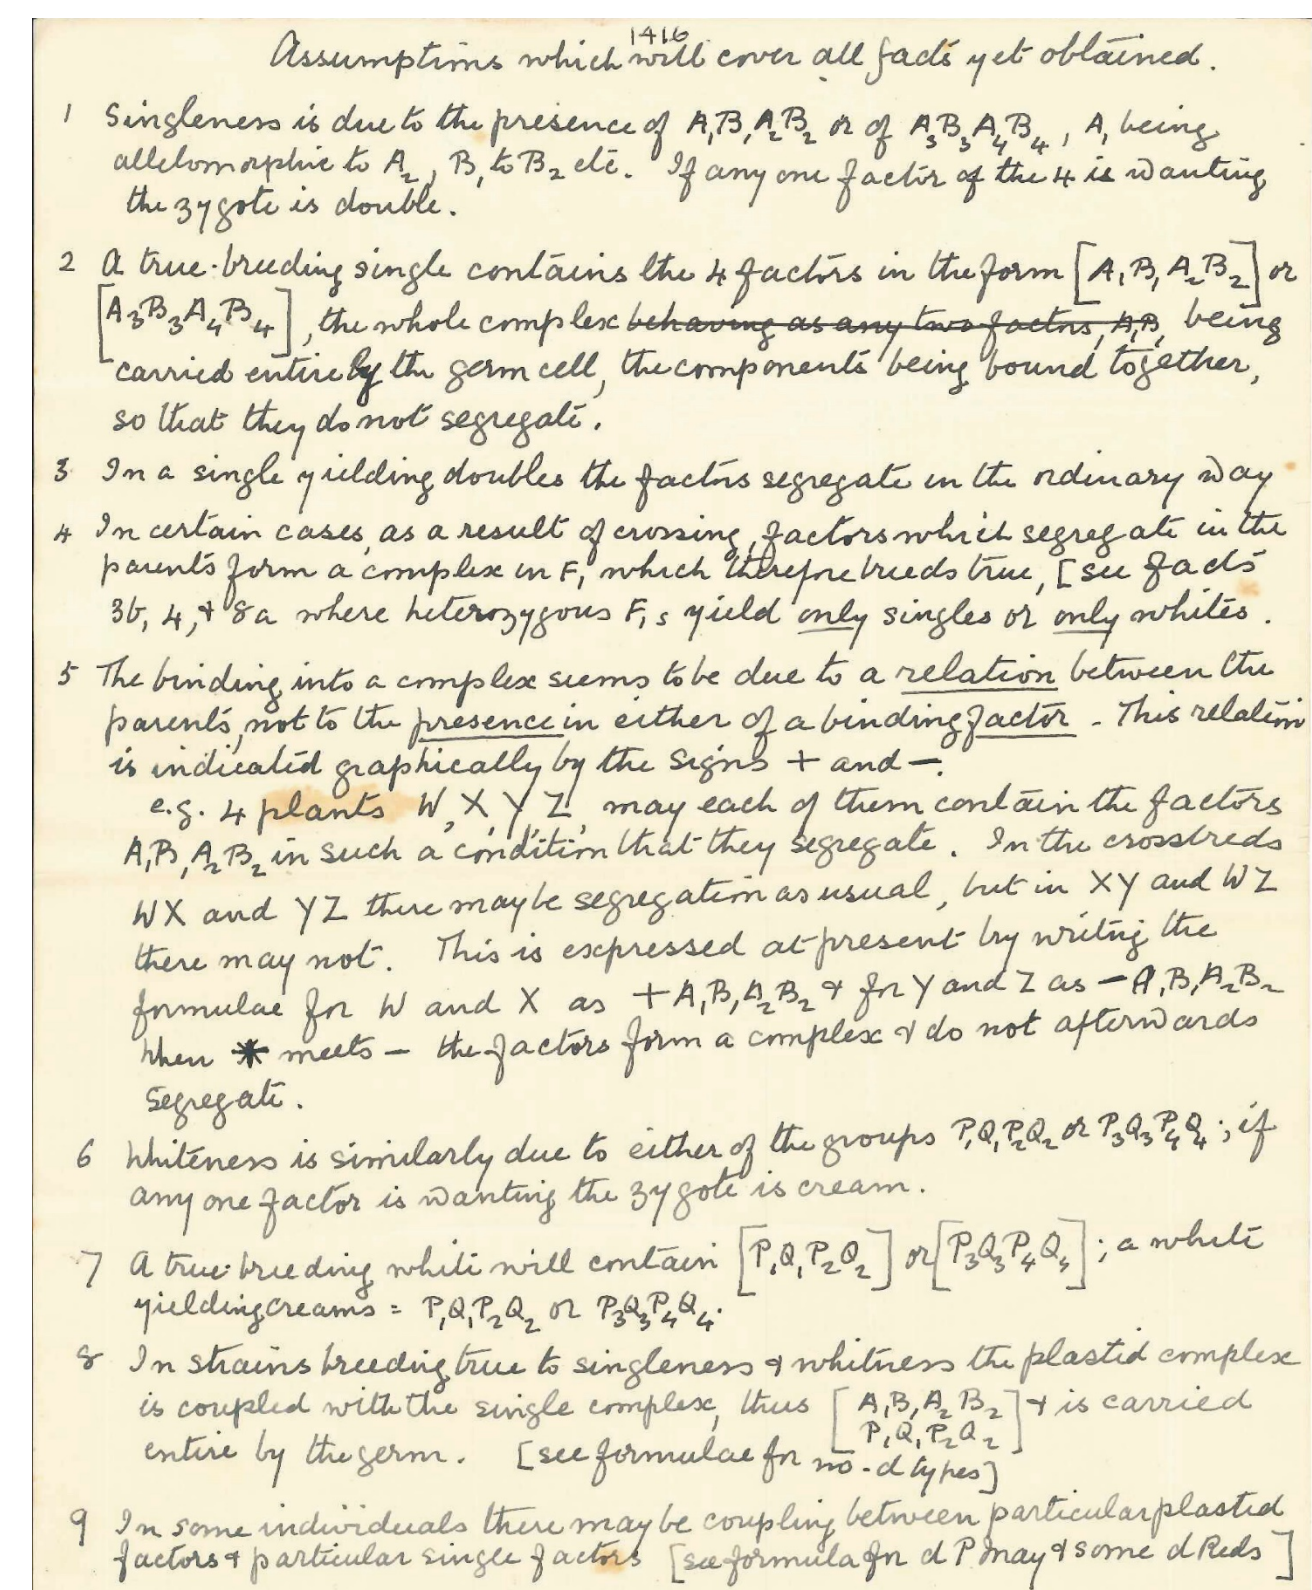 1416
Assumptions which will cover all facts yet obtained.
1 Singleness is due to the presence of A₁B₁A₂B₂ or of A₃B₃A₄B₄, A₁ being
allelomorphic to A₂, B₁ to B₂ etc. If any one factor of the 4 is wanting
the zygote is double.
2 A true-breeding single contains the 4 factors in the form [A₁B₁A₂B₂] or
[A₃B₃A₄B₄], the whole complex behaving as any two factors, A₁B₁ being
carried entire by the germ cell, the components being bound together,
so that they do not segregate.
3 In a single yielding doubles the factors segregate in the ordinary way
4 In certain cases, as a result of crossing, factors which segregate in the
parents form a complex in F₁ which therefore breeds true, [see facts
3b, 4, & 8a where heterozygous F₁s yield only singles or only whites.
5 The binding into a complex seems to be due to a relation between the
parents, not to the presence in either of a binding factor - This relation
is indicated graphically by the signs + and -.
e.g. 4 plants W, X, Y, Z, may each of them contain the factors
A₁B₁A₂B₂ in such a condition that they segregate. In the crossbreds
WX and YZ there may be segregation as usual, but in XY and WZ
there may not. This is expressed at present by writing the
formulae for W and X as + A₁B₁A₂B₂ & for Y and Z as - A₁B₁A₂B₂
When + meets - the factors form a complex & do not afterwards
segregate.
6 Whiteness is similarly due to either of the groups P₁Q₁P₂Q₂ or P₃Q₃P₄Q₄; if
any one factor is wanting the zygote is cream.
7 A true-breeding white will contain [P₁Q₁P₂Q₂] or [P₃Q₃P₄Q₄]; a white
yielding creams = P₁Q₁P₂Q₂ or P₃Q₃P₄Q₄.
8 In strains breeding true to singleness & whitness the plastid complex
is coupled with the single complex, thus [A₁B₁A₂B₂ & is carried
P₁Q₁P₂Q₂]
entire by the germ. [see formulae for no-d types]
9 In some individuals there may be coupling between particular plastid
factors & particular single factors [see formula for d P may & some d Reds]